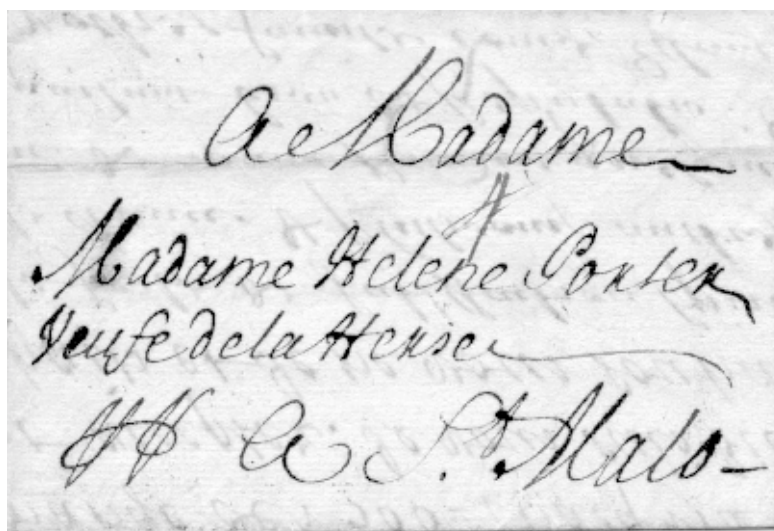 A Madame
Madame Helene Porter
Veufe de la Herse
A St. Malo